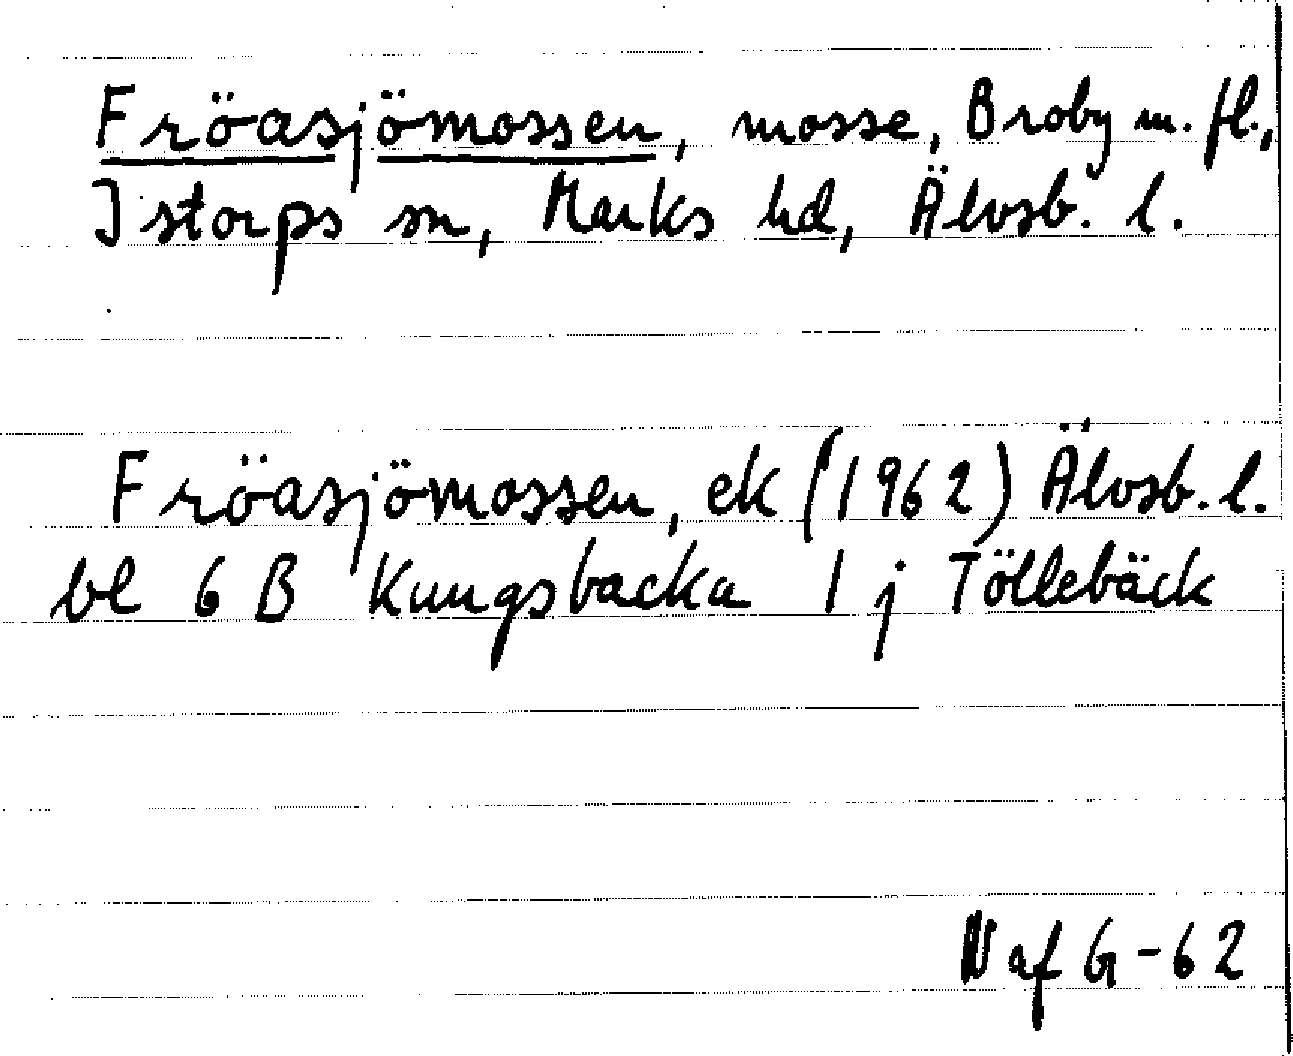 Fröasjömossen, mosse, Broby m. fl.,
Istorps sn, Marks hd, Älvsb. l.
Fröasjömossen, ek (1962) Älvsb. l.
bl 6 B Kungsbacka 1 j Töllebäck
Naf G-62